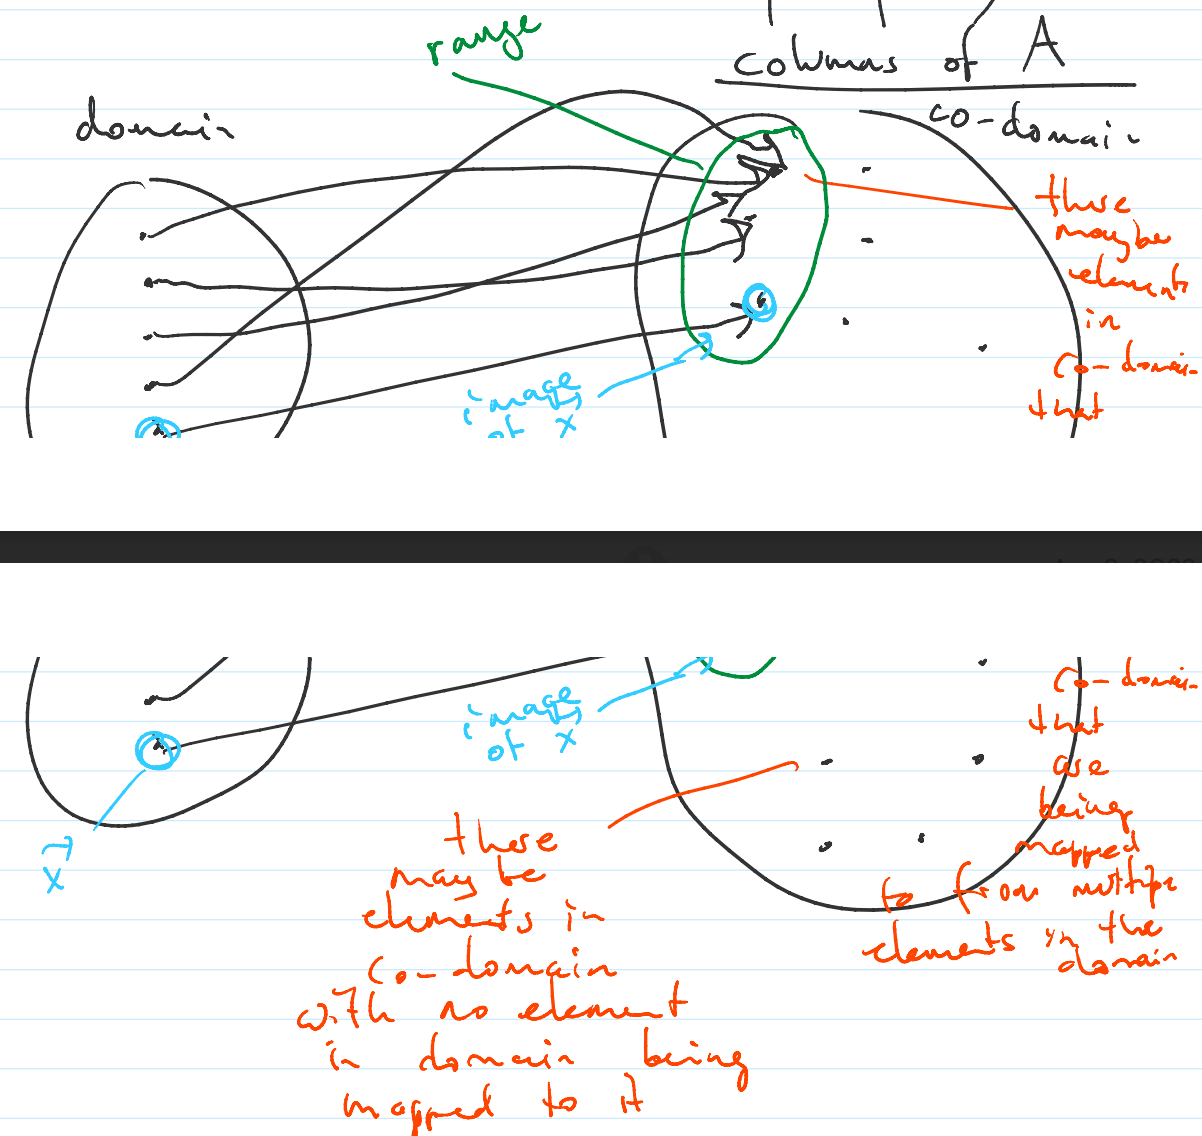 columns of A
range
co-domain
domain
there
maybe
elements
in
co-domain
that
image
of x
co-domain
that
are
being
mapped
to from multiple
elements in the
domain
image
of x
x
there
may be
elements in
co-domain
with no element
in domain being
mapped to it